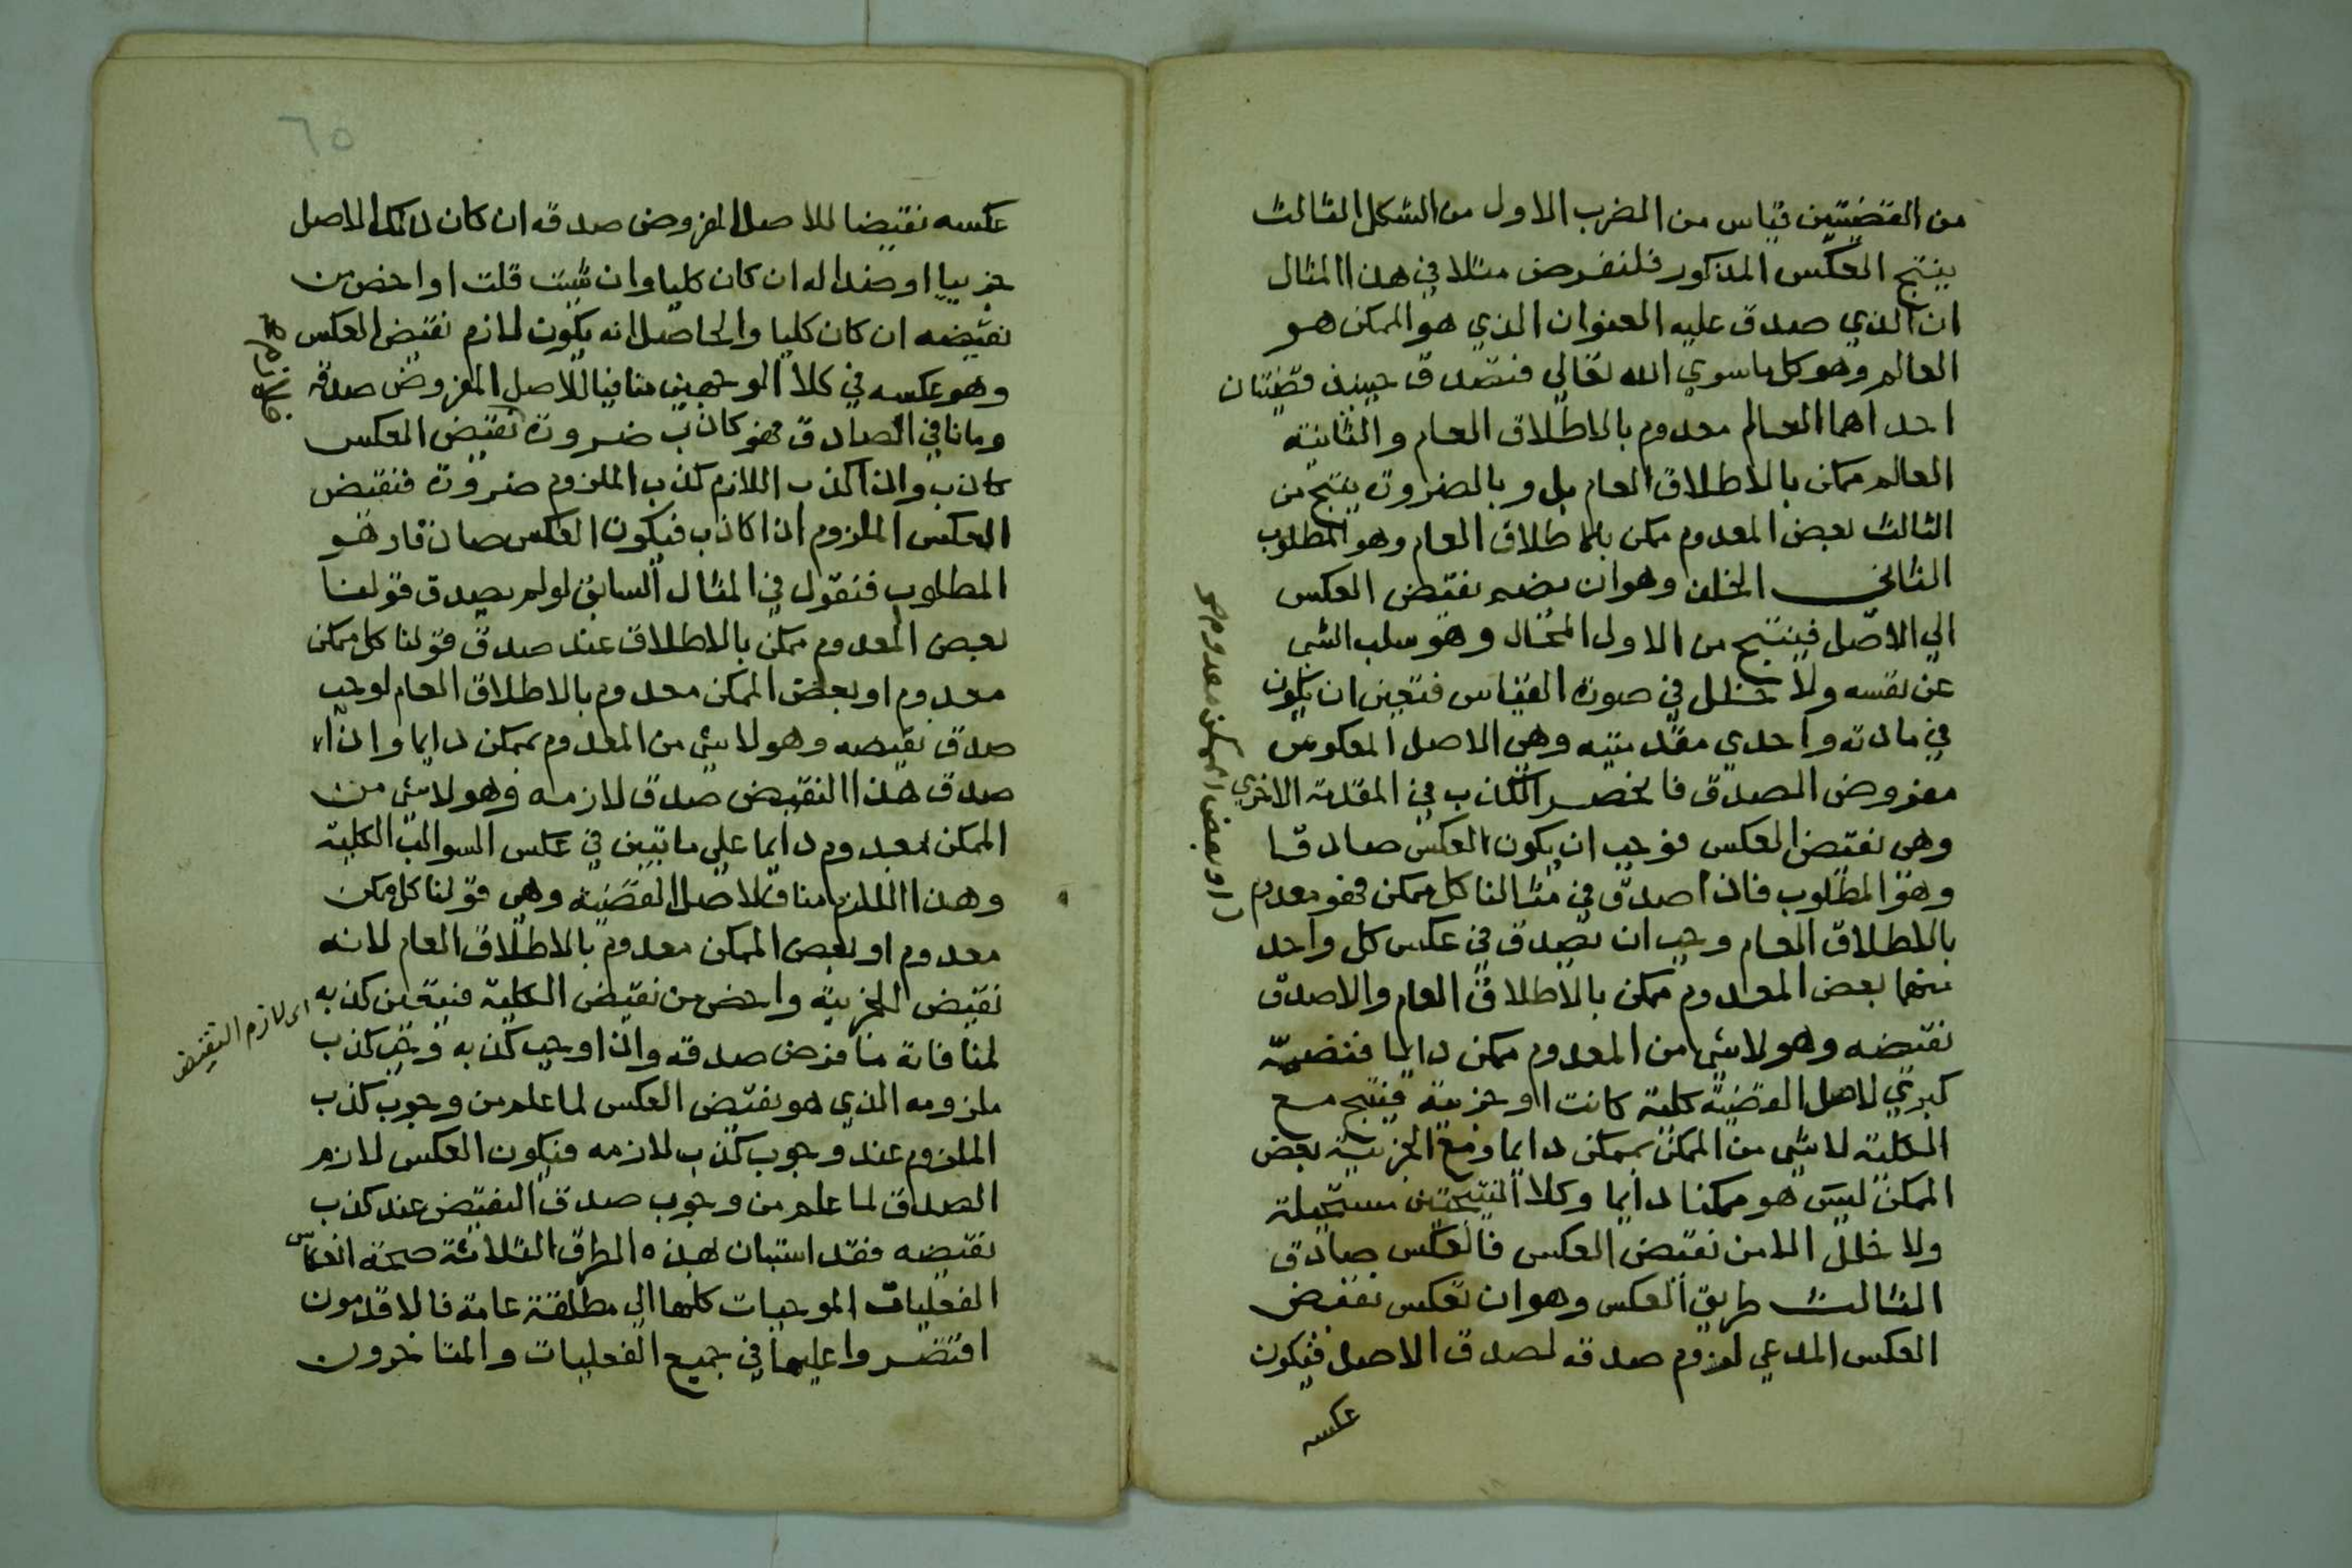 من القضيتين قياس من الضرب الاول من الشكل الثالث
ينتج العكس المذكور فلنفرض مثلا في هذا المثال
ان الذي صدق عليه العنوان الذي هو الممكن هو
العالم وهو كل ما سوي الله تعالي فتصدق حينئذ قضيتان
احداهما العالم معدوم بالاطلاق العام والثانية
العالم ممكن بالاطلاق العام بل وبالضرورة ينتج من
الثالث بعض المعدوم ممكن بالاطلاق العام وهو المطلوب
الثاني الخلف وهو ان يضم نقيض العكس
الي الاصل فينتج من الاول المحال وهو سلب الشي
عن نفسه ولا خلل في صورة القياس فتعين ان يكون
في مادته واحدي مقدمتيه وهي الاصل المعكوس
مفروض الصدق فانحصر الكذب في المقدمة الاخري
وهي نقيض العكس فوجب ان يكون العكس صادقا
وهو المطلوب فاذا صدق في مثالنا كل ممكن فهو معدوم
او بعض الممكن معدوم هو
بالاطلاق العام وجب ان يصدق في عكس كل واحد
منهما بعض المعدوم ممكن بالاطلاق العام والاصدق
نقيضه وهو لاشي من المعدوم ممكن دايما فنضمه
كبري لاصل القضية كلية كانت او جزيية فينتج مع
الكلية لاشي من الممكن بممكن دايما ومع الجزيية بعض
الممكن ليس هو ممكنا دايما وكلا النتيجتين مستحيلة
ولا خلل الا من نقيض العكس فالعكس صادق
الثالث طريق العكس وهو ان تعكس نقيض
العكس المدعي لزوم صدقه لصدق الاصل فيكون
عكسه
٦٥
عكسه نقيضا للاصل المفروض صدقه ان كان ذلك الاصل
جزييا او ضدا له ان كان كليا وان شيت قلت او اخص من
نقيضه ان كان كليا والحاصل انه يكون لازم نقيض العكس
وهو عكسه في كلا الوجهين منافيا للاصل المفروض صدقه
ومانافي الصادق فهو كاذب ضرورة نقيض العكس
كاذب واذا كذب اللازم كذب الملزوم ضرورة فنقيض
العكس الملزوم اذا كاذب فيكون العكس صادقا وهو
المطلوب فنقول في المثال السابق لو لم يصدق قولنا
بعض المعدوم ممكن بالاطلاق عند صدق قولنا كل ممكن
معدوم او بعض الممكن معدوم بالاطلاق العام لوجب
صدق نقيضه وهو لاشي من المعدوم بممكن دايما واذا
صدق هذا النقيض صدق لازمه وهو لاشي من
الممكن بمعدوم دايما علي ما تبين في عكس السوالب الكلية
وهذا اللازم مناف لاصل القضية وهي قولنا كل ممكن
معدوم او بعض الممكن معدوم بالاطلاق العام لانه
نقيض الجزيية واخص من نقيض الكلية فيتعين كذبه
اي لازم النقيض
لمنافاة ما فرض صدقه واذا وجب كذبه وجب كذب
ملزومه الذي هو نقيض العكس لما علم من وجوب كذب
الملزوم عند وجوب كذب لازمه فيكون العكس لازم
الصدق لما علم من وجوب صدق النقيض عند كذب
نقيضه فقد استبان بهذه الطرق الثلاثة صحة انعكاس
الفعليات الموجبات كلها الي مطلقة عامة فالاقدمون
اقتصروا عليها في جميع الفعليات والمتاخرون